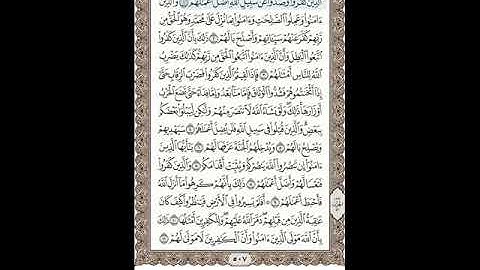 الَّذِينَ كَفَرُوا وَصَدُّوا عَن سَبِيلِ اللَّهِ أَضَلَّ أَعْمَالَهُمْ ۝١ وَالَّذِينَ
ءَامَنُوا وَعَمِلُوا الصَّالِحَاتِ وَءَامَنُوا بِمَا نُزِّلَ عَلَىٰ مُحَمَّدٍ وَهُوَ الْحَقُّ مِن
رَّبِّهِمْ كَفَّرَ عَنْهُمْ سَيِّئَاتِهِمْ وَأَصْلَحَ بَالَهُمْ ۝٢ ذَٰلِكَ بِأَنَّ الَّذِينَ كَفَرُوا
اتَّبَعُوا الْبَاطِلَ وَأَنَّ الَّذِينَ ءَامَنُوا اتَّبَعُوا الْحَقَّ مِن رَّبِّهِمْ كَذَٰلِكَ يَضْرِبُ
اللَّهُ لِلنَّاسِ أَمْثَالَهُمْ ۝٣ فَإِذَا لَقِيتُمُ الَّذِينَ كَفَرُوا فَضَرْبَ الرِّقَابِ حَتَّىٰ
إِذَا أَثْخَنتُمُوهُمْ فَشُدُّوا الْوَثَاقَ فَإِمَّا مَنًّا بَعْدُ وَإِمَّا فِدَاءً حَتَّىٰ تَضَعَ الْحَرْبُ
أَوْزَارَهَا ذَٰلِكَ وَلَوْ يَشَاءُ اللَّهُ لَانتَصَرَ مِنْهُمْ وَلَٰكِن لِّيَبْلُوَا بَعْضَكُم
بِبَعْضٍ وَالَّذِينَ قُتِلُوا فِي سَبِيلِ اللَّهِ فَلَن يُضِلَّ أَعْمَالَهُمْ ۝٤ سَيَهْدِيهِمْ
وَيُصْلِحُ بَالَهُمْ ۝٥ وَيُدْخِلُهُمُ الْجَنَّةَ عَرَّفَهَا لَهُمْ ۝٦ يَا أَيُّهَا الَّذِينَ
ءَامَنُوا إِن تَنصُرُوا اللَّهَ يَنصُرْكُمْ وَيُثَبِّتْ أَقْدَامَكُمْ ۝٧ وَالَّذِينَ كَفَرُوا
فَتَعْسًا لَّهُمْ وَأَضَلَّ أَعْمَالَهُمْ ۝٨ ذَٰلِكَ بِأَنَّهُمْ كَرِهُوا مَا أَنزَلَ اللَّهُ
فَأَحْبَطَ أَعْمَالَهُمْ ۝٩ أَفَلَمْ يَسِيرُوا فِي الْأَرْضِ فَيَنظُرُوا كَيْفَ كَانَ
عَاقِبَةُ الَّذِينَ مِن قَبْلِهِمْ دَمَّرَ اللَّهُ عَلَيْهِمْ وَلِلْكَافِرِينَ أَمْثَالُهَا ۝١٠ ذَٰلِكَ
بِأَنَّ اللَّهَ مَوْلَى الَّذِينَ ءَامَنُوا وَأَنَّ الْكَافِرِينَ لَا مَوْلَىٰ لَهُمْ ۝١١
٥٠٧